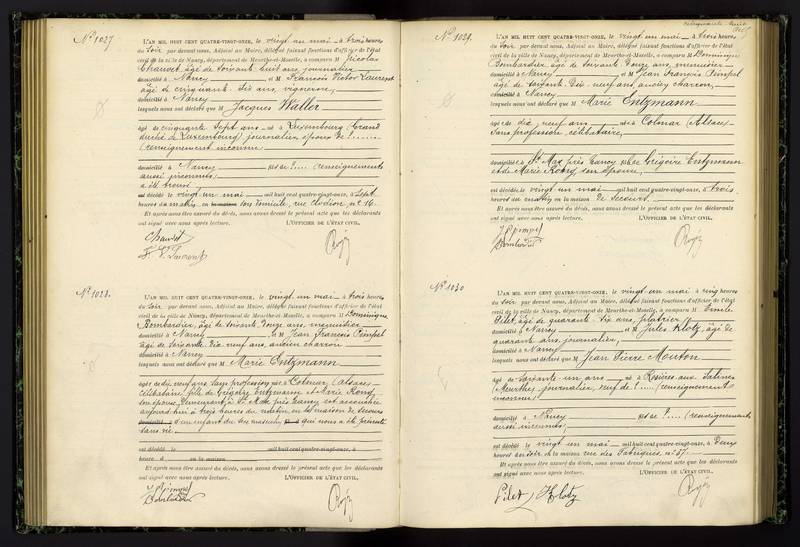 N° 1027
L'AN MIL HUIT CENT QUATRE-VINGT-ONZE, le vingt un mai à trois heures
du soir par devant nous, Adjoint au Maire, délégué faisant fonctions d'officier de l'état
civil de la ville de Nancy, département de Meurthe-et-Moselle, a comparu M Nicolas
Chauvet, âgé de soixante huit ans, journalier
domicilié à Nancy et M François Victor Laurent
âgé de cinquante dix ans, vigneron,
domicilié à Nancy
lesquels nous ont déclaré que M Jacques Waller
âgé de cinquante sept ans né à Luxembourg (Grand
duché de Luxembourg) journalier époux de ?
(renseignement inconnu)
domicilié à Nancy fils de ? (renseignements
aussi inconnus)
a été trouvé
est décédé le vingt un mai mil huit cent quatre-vingt-onze, à sept
heures du matin en la maison son domicile, rue Clodion n° 16.
Et après nous être assuré du décès, nous avons dressé le présent acte que les déclarants
ont signé avec nous après lecture. L'OFFICIER DE L'ÉTAT CIVIL,
Chauvet
F. V. Laurent
N° 1028.
L'AN MIL HUIT CENT QUATRE-VINGT-ONZE, le vingt un mai à trois heures
du soir par devant nous, Adjoint au Maire, délégué faisant fonctions d'officier de l'état
civil de la ville de Nancy, département de Meurthe-et-Moselle, a comparu M Dominique
Bombardier, âgé de soixante douze ans, menuisier
domicilié à Nancy et M Jean François
âgé de soixante dix neuf ans, ancien charron
domicilié à Nancy
lesquels nous ont déclaré que M Marie Entzmann
âgée de dix neuf ans sans profession née à Colmar (Alsace)
célibataire, fille de Grégoire Entzmann et Marie
son épouse, demeurant à St Max près Nancy est accouchée
aujourd'hui à trois heures du matin, en la maison de secours
domicilié à d'un enfant du sexe masculin, qui nous a été présenté
sans vie.
est décédé le mil huit cent quatre-vingt-onze, à
heure d en la maison
Et après nous être assuré du décès, nous avons dressé le présent acte que les déclarants
ont signé avec nous après lecture. L'OFFICIER DE L'ÉTAT CIVIL,
Bombardier
N° 1029.
L'AN MIL HUIT CENT QUATRE-VINGT-ONZE, le vingt un mai à trois heures
du soir par devant nous, Adjoint au Maire, délégué faisant fonctions d'officier de l'état
civil de la ville de Nancy, département de Meurthe-et-Moselle, a comparu M Dominique
Bombardier, âgé de soixante douze ans, menuisier
domicilié à Nancy et M Jean François
âgé de soixante dix neuf ans, ancien charron,
domicilié à Nancy
lesquels nous ont déclaré que M Marie Entzmann
âgée de dix neuf ans née à Colmar (Alsace)
sans profession célibataire,
domiciliée à St Max près Nancy fille de Grégoire Entzmann
et de Marie son épouse,
est décédée le vingt un mai mil huit cent quatre-vingt-onze, à trois
heures du matin en la maison de secours.
Et après nous être assuré du décès, nous avons dressé le présent acte que les déclarants
ont signé avec nous après lecture. L'OFFICIER DE L'ÉTAT CIVIL,
Bombardier
N° 1030
L'AN MIL HUIT CENT QUATRE-VINGT-ONZE, le vingt un mai à cinq heures
du soir par devant nous, Adjoint au Maire, délégué faisant fonctions d'officier de l'état
civil de la ville de Nancy, département de Meurthe-et-Moselle, a comparu M Emile
Pilet, âgé de quarante dix ans, plâtrier
domicilié à Nancy et M Jules Klotz, âgé de
quarante ans, journalier,
domicilié à Nancy
lesquels nous ont déclaré que M Jean Pierre Mouton
âgé de soixante un ans né à Rosières aux Salines
(Meurthe) journalier, veuf de ? (renseignement
inconnu)
domicilié à Nancy fils de ? (renseignements
aussi inconnus)
est décédé le vingt un mai mil huit cent quatre-vingt-onze, à deux
heures du soir en la maison rue des Fabriques n° 37.
Et après nous être assuré du décès, nous avons dressé le présent acte que les déclarants
ont signé avec nous après lecture. L'OFFICIER DE L'ÉTAT CIVIL,
Pilet J Klotz